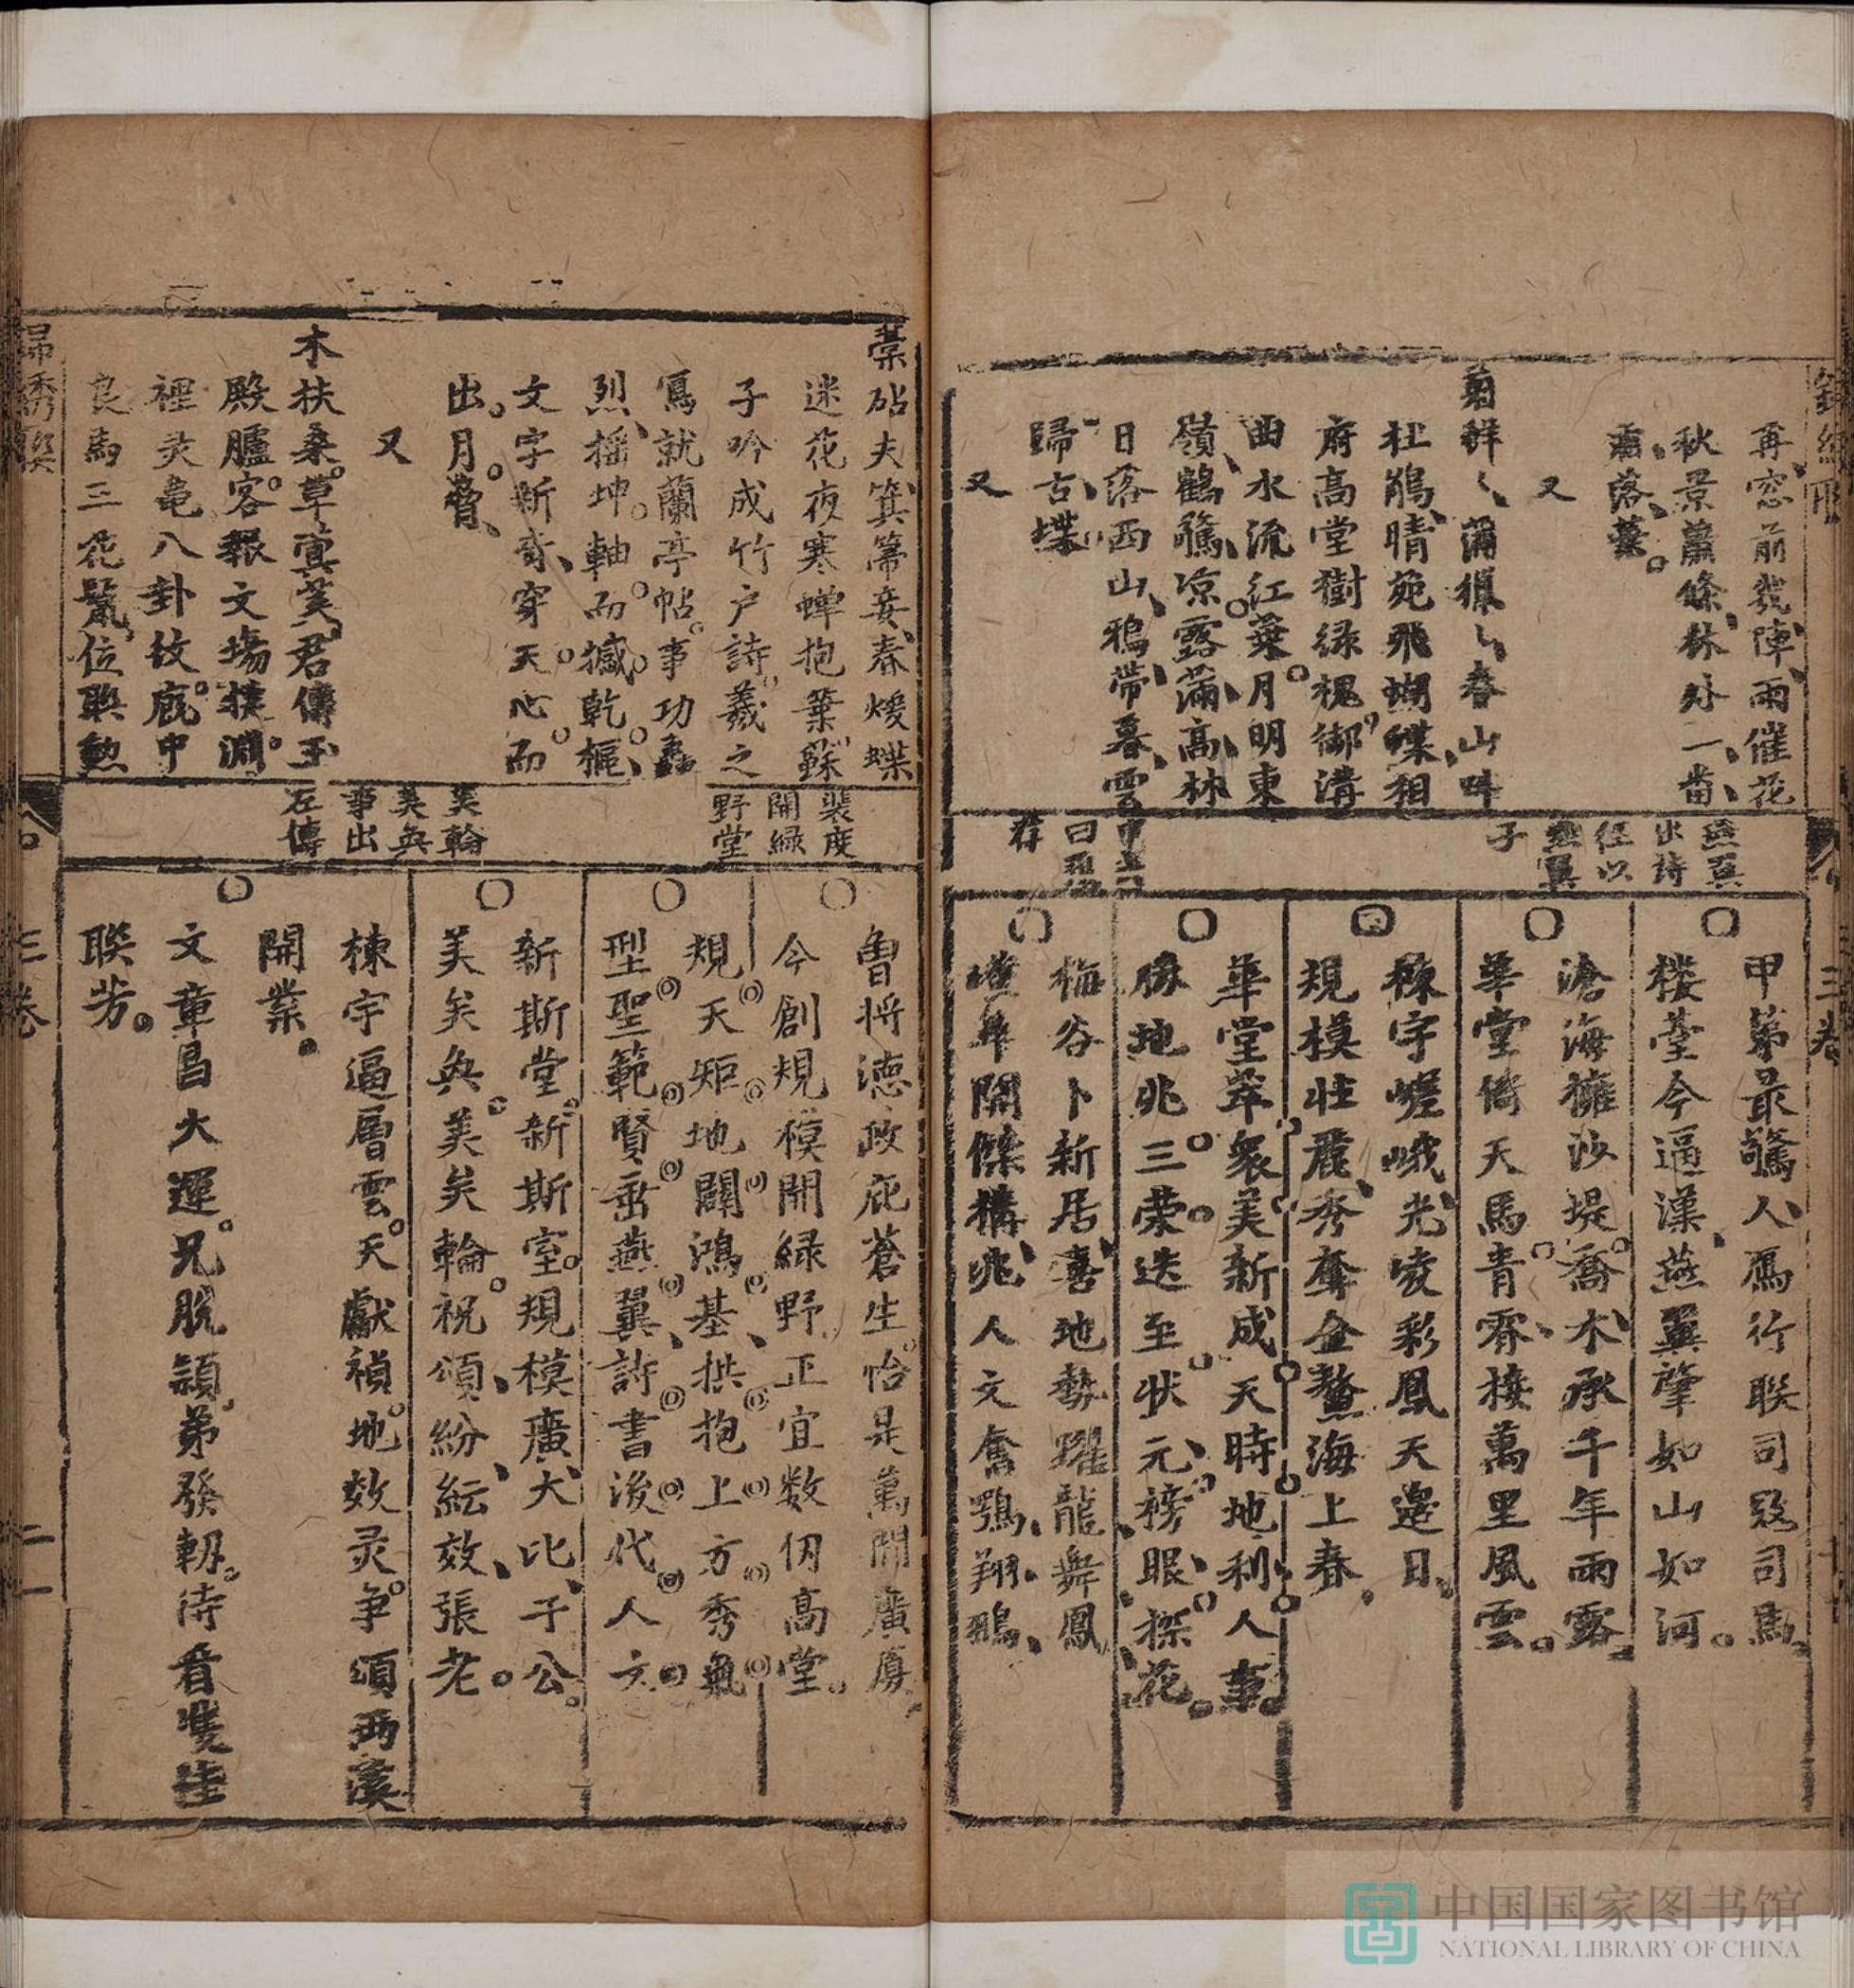 再窓前幾陣雨催花
秋景蕭條林外一畨
霜落葉
又
蒲獵〻春山叫
杜鵑晴苑飛蝴蝶相
府高堂樹绿槐御溝
曲水流红葉月明東
嶺鶴驚凉露滿高林
日落西山鴉带暮雲
歸古堞
又
燕翼
出詩
經以
燕翼
子
存
甲第最驚人鴈行联司寇司馬
楼薹今逼漢燕翼肇如山如河
滄海擁沙堤喬木承千年雨露
華堂倚天馬青霄接萬里風雲
棟宇嵯峨光凌彩鳳天邉日
規模壮麗秀奪金鰲海上春
華堂萃衆美新成天時地利人事
勝地兆三荣迭至状元榜眼探花
梅谷卜新居喜地勢躍龍舞鳳
開傑構兆人文奮鶚翔鵬
三卷
藁砧夫箕箒妾春煖蝶
迷花夜寒蟬抱葉蘇
子吟成竹户詩羲之
寫就蘭亭帖事功轟
烈摇坤軸而撼乾樞
文字新奇穿天心而
出月脅
又
木扶桑草蓂荚君傳玉
殿臚客報文塲捷淵
裡灵亀八卦纹廐中
良馬三花鬣位联勲
裴度
開緑
野堂
美輪
美奐
事出
左傳
魯將徳政庇蒼生恰是萬間廣厦
今創規模開緑野正宜数仞高堂
規天矩地闢鴻基拱抱上方秀氣
型聖範賢垂燕翼詩書後代人文
新斯堂新斯室規模廣大比于公
美矣奐美矣輪祝頌紛紜效張老
棟宇逼層雲天獻禎地效灵争頌两溪
開業
文章昌大運兄脱頴弟發軔待看雙桂
联芳
三卷
二一
中国国家图书馆
NATIONAL LIBRARY OF CHINA